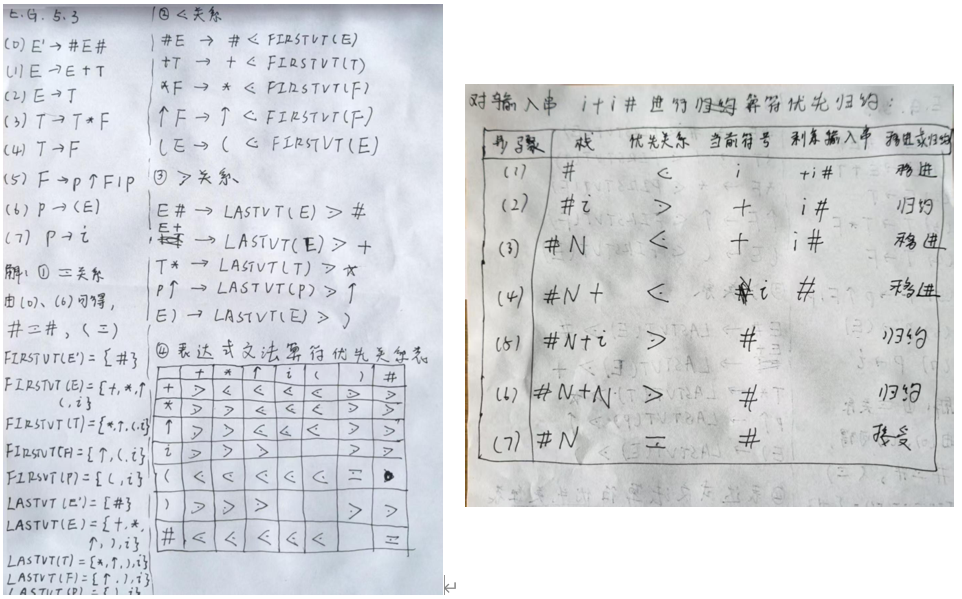 E.G. 5.3
(0) E'→#E#
(1) E→E+T
(2) E→T
(3) T→T*F
(4) T→F
(5) F→P↑F|P
(6) P→(E)
(7) P→i
解:① 二关系
由(0)、(6)可得,
#二#,(二)
FIRSTVT(E')={#}
FIRSTVT(E)={+,*,↑
(,i}
FIRSTVT(T)={*,↑,(,i}
FIRSTVT(F)={↑,(,i}
FIRSVT(P)={(,i}
LASTVT(E')={#}
LASTVT(E)={+,*,
↑,),i}
LASTVT(T)={*,↑,),i}
LASTVT(F)={↑,),i}
LASTVT(P)={),i}
② ⋖关系
#E → #⋖FIRSTVT(E)
+T → +⋖FIRSTVT(T)
*F → *⋖FIRSTVT(F)
↑F → ↑⋖FIRSTVT(F)
(E → (⋖FIRSTVT(E)
③ ⋗关系、
E# → LASTVT(E)⋗#
E+ → LASTVT(E)⋗+
T* → LASTVT(T)⋗*
P↑ → LASTVT(P)⋗↑
E) → LASTVT(E)⋗)
④ 表达式文法算符优先关系表
+ * ↑ i ( ) #
+ ⋗ ⋖ ⋖ ⋖ ⋖ ⋗ ⋗
* ⋗ ⋗ ⋖ ⋖ ⋖ ⋗ ⋗
↑ ⋗ ⋗ ⋖ ⋖ ⋖ ⋗ ⋗
i ⋗ ⋗ ⋗ ⋗ ⋗
( ⋖ ⋖ ⋖ ⋖ ⋖ 二
) ⋗ ⋗ ⋗ ⋗ ⋗
# ⋖ ⋖ ⋖ ⋖ ⋖ 二
对输入串 i+i# 进行归约算符优先归约:
步骤 栈 优先关系 当前符号 剩余输入串 移进或归约
(1) # ⋖ i +i# 移进
(2) #i ⋗ + i# 归约
(3) #N ⋖ + i# 移进
(4) #N+ ⋖ i # 移进
(5) #N+i ⋗ # 归约
(6) #N+N ⋗ # 归约
(7) #N 二 # 接受